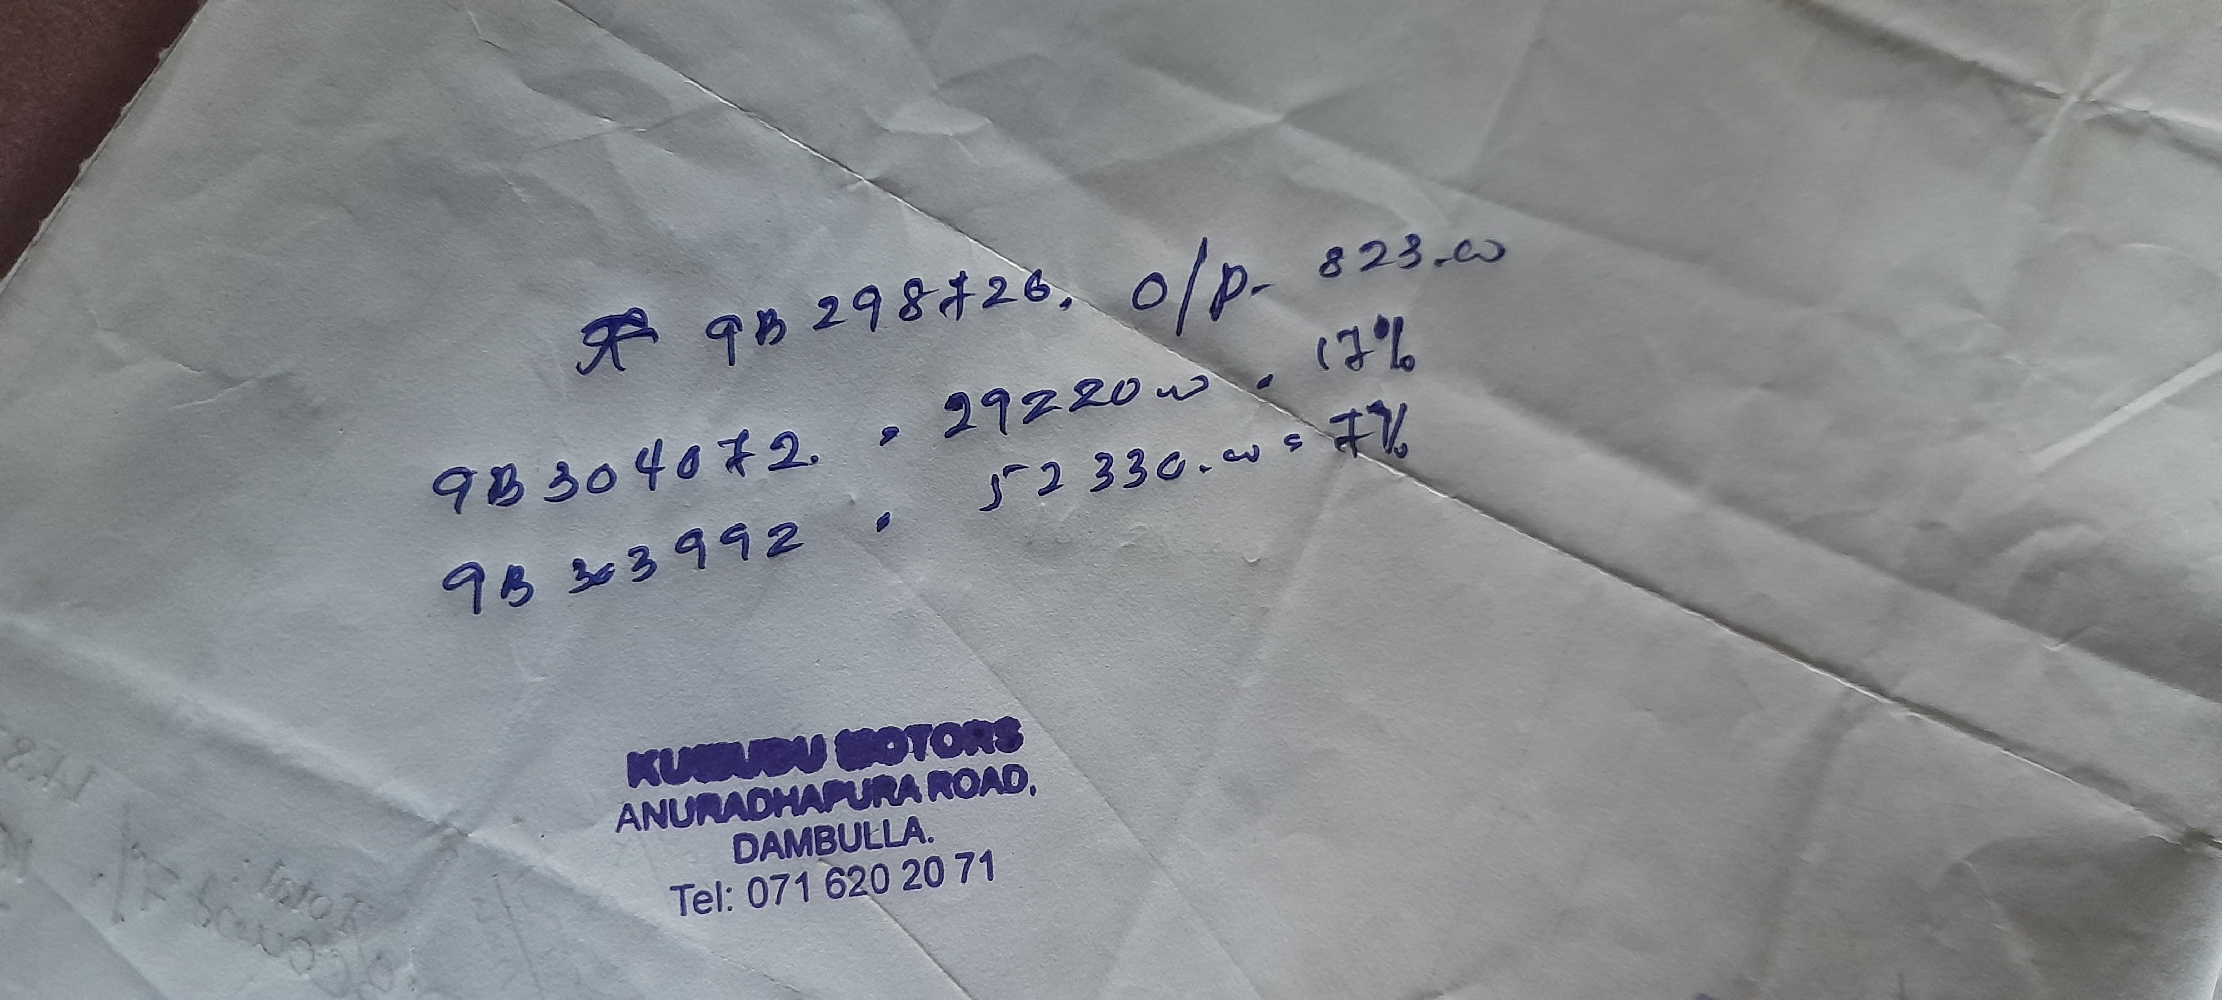 9B 298726. O/P- 823.00
9B 304072. 29220 00 . 17%
9B 303992 . 52330.00 = 7%
KUSUDU MOTORS
ANURADHAPURA ROAD,
DAMBULLA.
Tel: 071 620 20 71